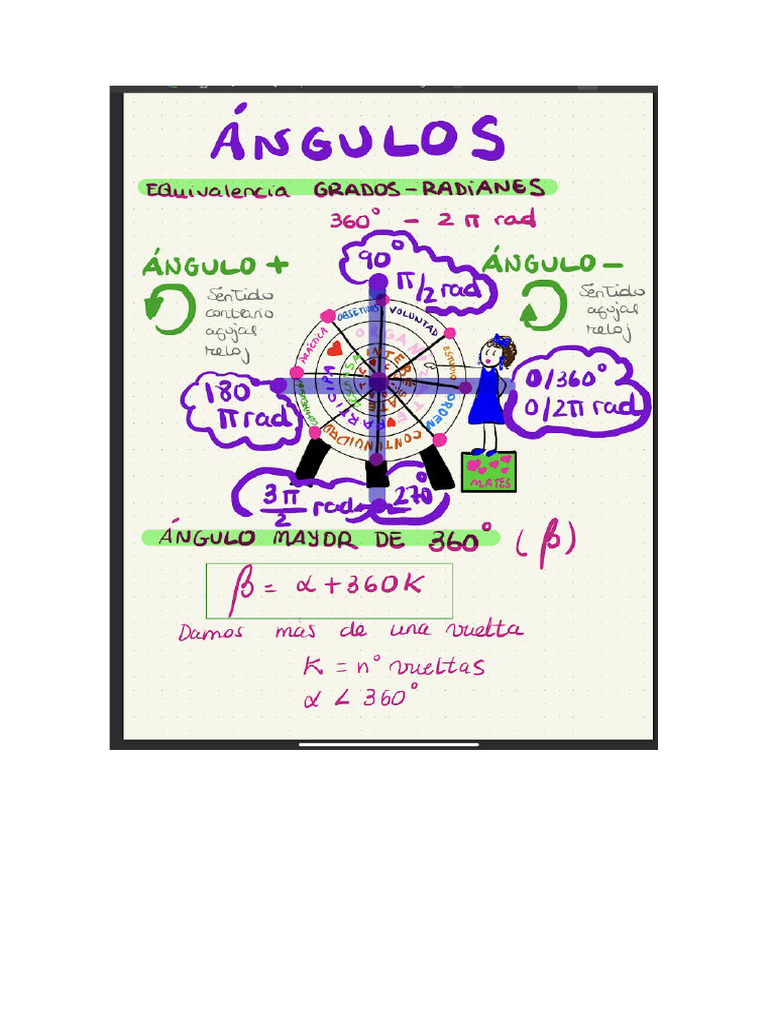 ÁNGULOS
EQUIVALENCIA GRADOS-RADIANES
360° - 2 π rad
90°
π/2 rad
ÁNGULO +
Sentido
contrario
agujas
reloj
ÁNGULO -
Sentido
agujas
reloj
OBJETIVOS
VOLUNTAD
PRÁCTICA
ESTUDIO
ORDEN
CONTINUIDAD
PARTICIPA
ORGANIZA
180°
π rad
0/360°
0/2π rad
3π/2 rad
270°
MATES
ÁNGULO MAYOR DE 360° (β)
β = α + 360K
Damos más de una vuelta
K = n° vueltas
α < 360°